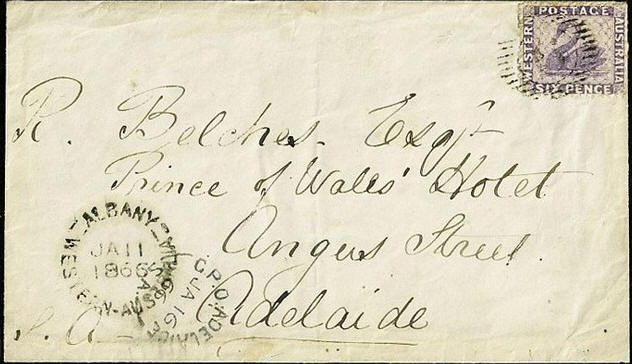 POSTAGE
WESTERN
AUSTRALIA
SIX PENCE
R. Belches Esqr
Prince of Wales' Hotel
Angus Street
Adelaide
S. A
ALBANY
WESTERN-AUSTRALIA
JA 11
1866
G.P.O. ADELAIDE
JA 16
66